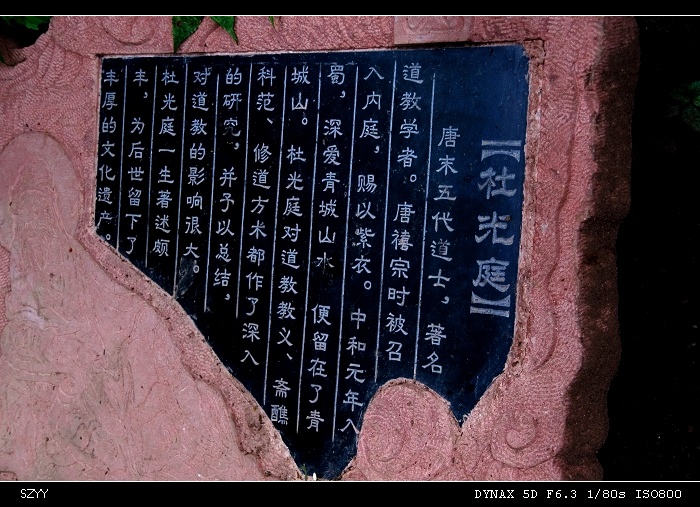 【杜光庭】
唐末五代道士，著名
道教学者。唐禧宗时被召
入内庭，赐以紫衣。中和元年入
蜀，深爱青城山水 便留在了青
城山。杜光庭对道教教义、斋醮
科范、修道方术都作了深入
的研究，并予以总结，
对道教的影响很大。
杜光庭一生著述颇
丰，为后世留下了
丰厚的文化遗产。
SZYY
DYNAX 5D F6.3 1/80s ISO800